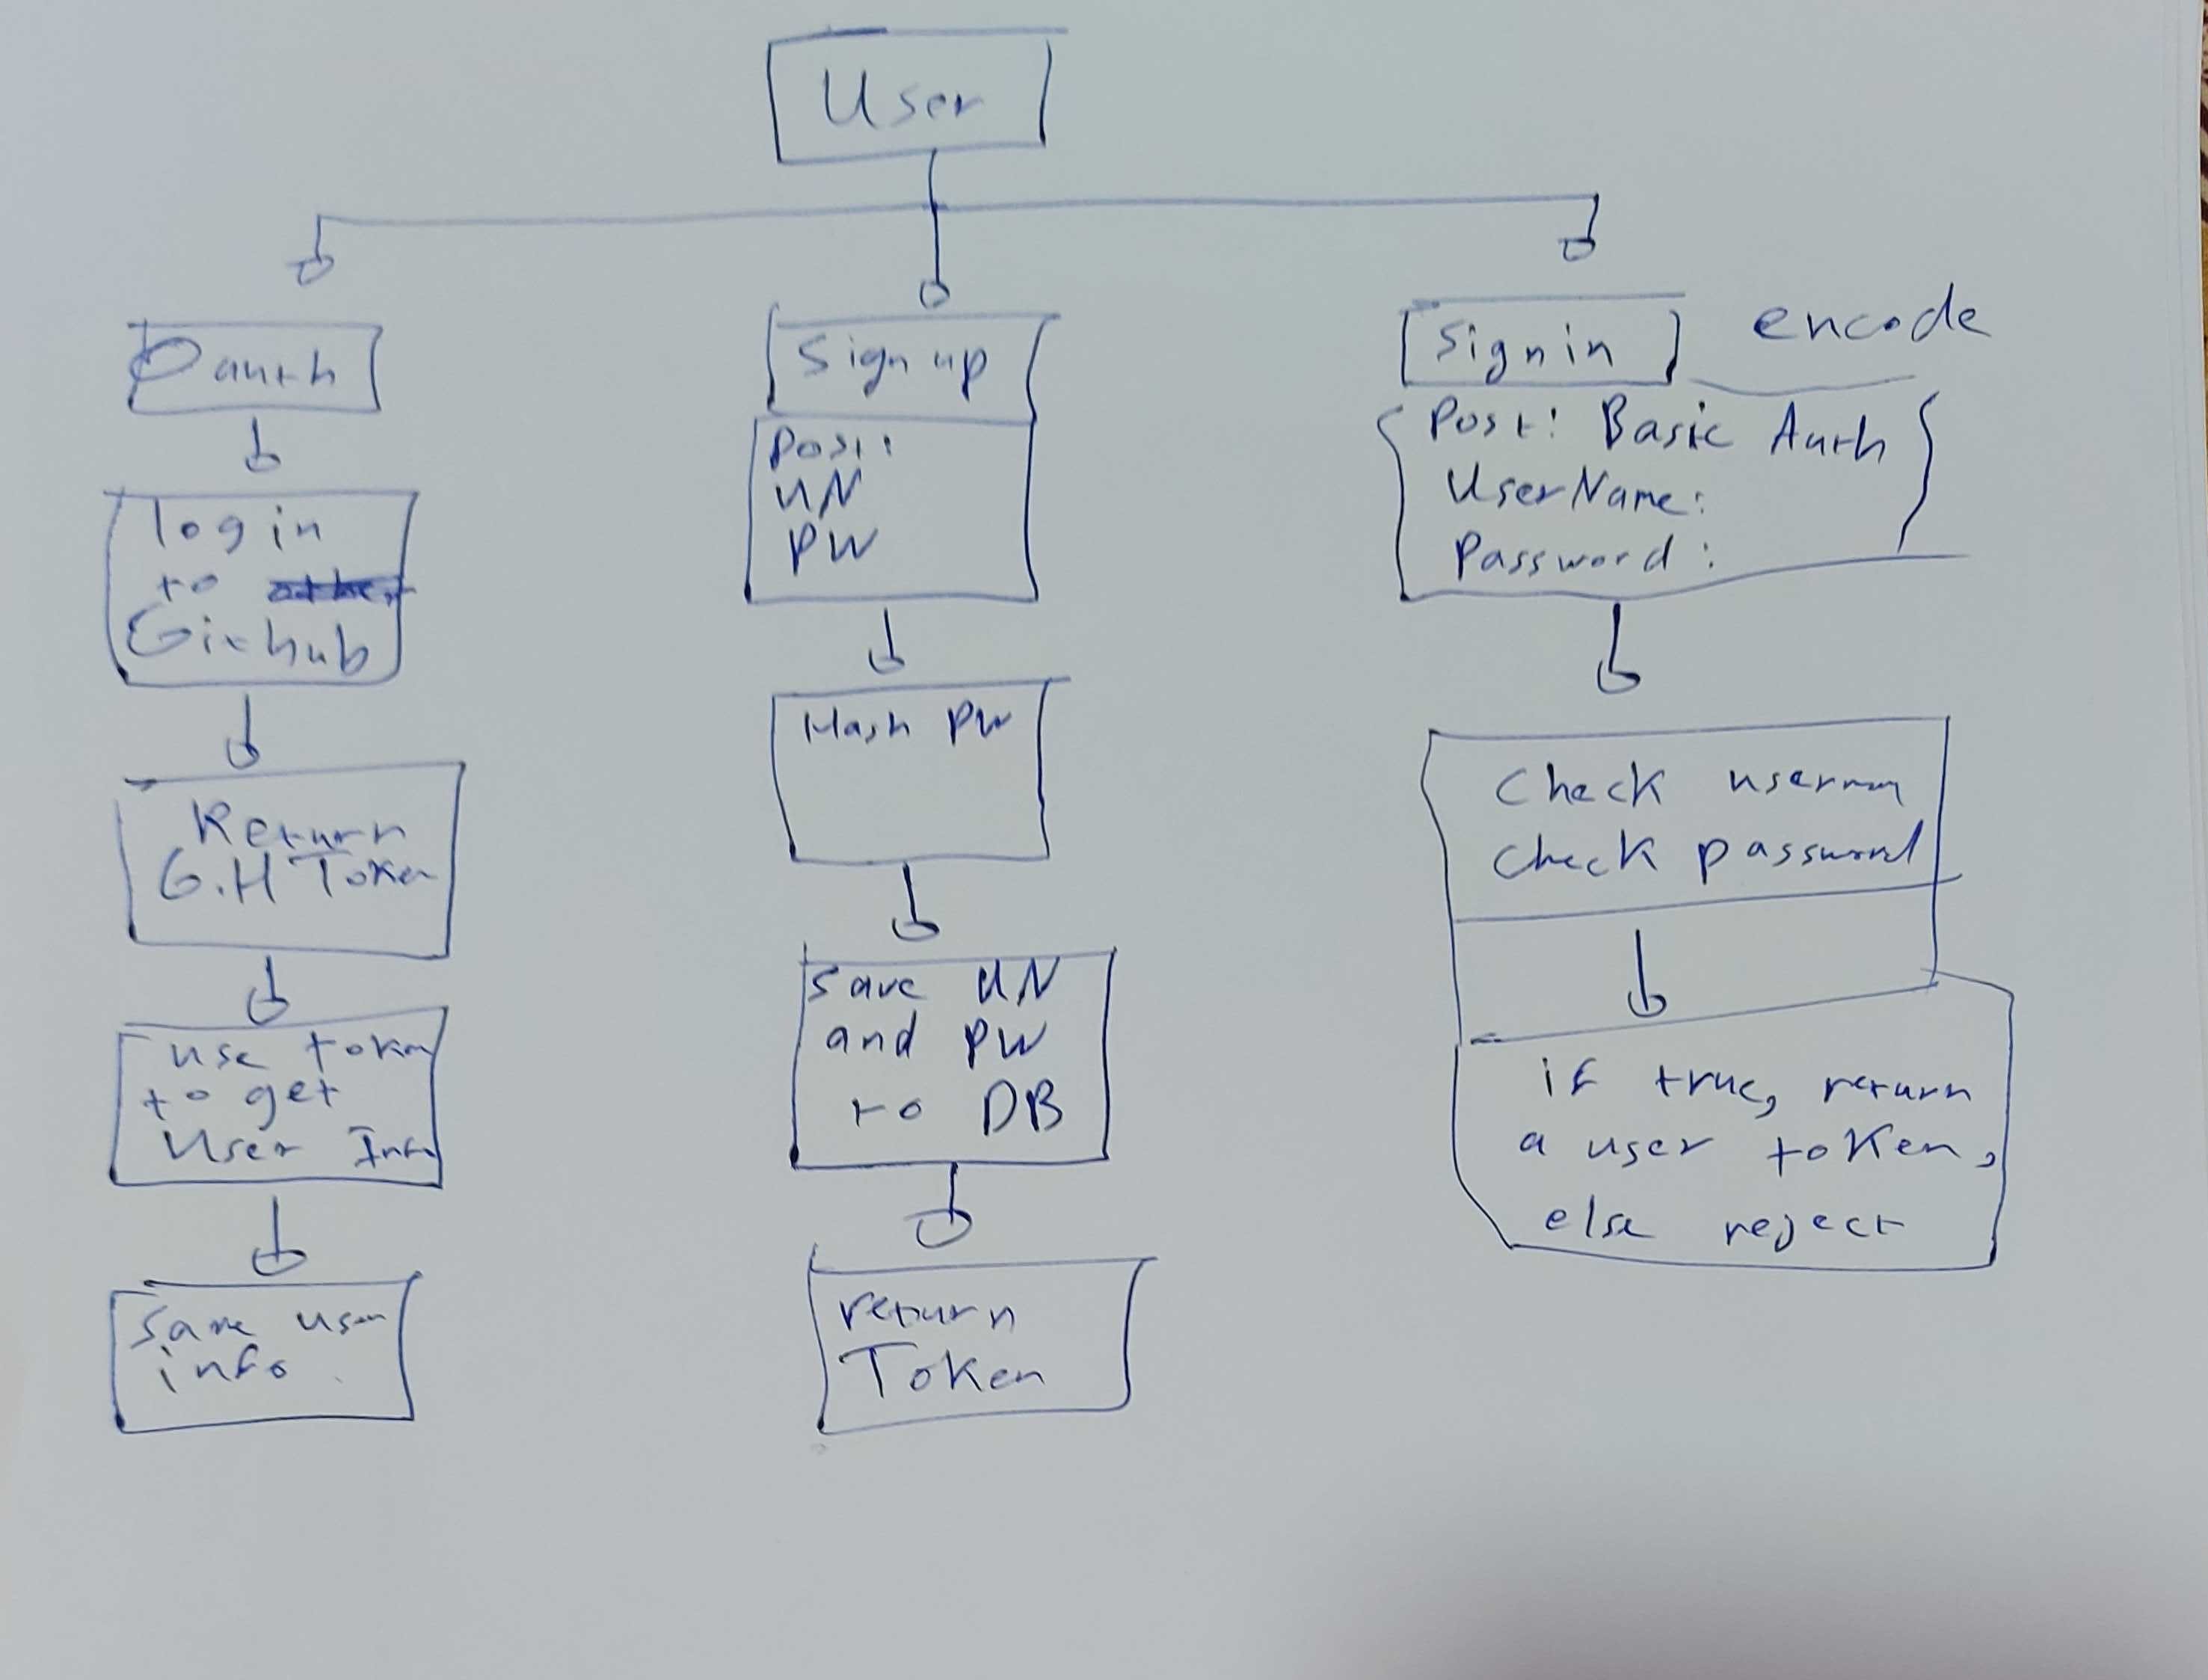 User
Oauth
login
to
Github
Return
G.H Token
use token
to get
User Info
Save user
info
Sign up
Post:
UN
PW
Hash PW
Save UN
and PW
to DB
return
Token
Sign in
encode
Post: Basic Auth
UserName:
Password:
Check
check password
if true, return
a user token,
else reject